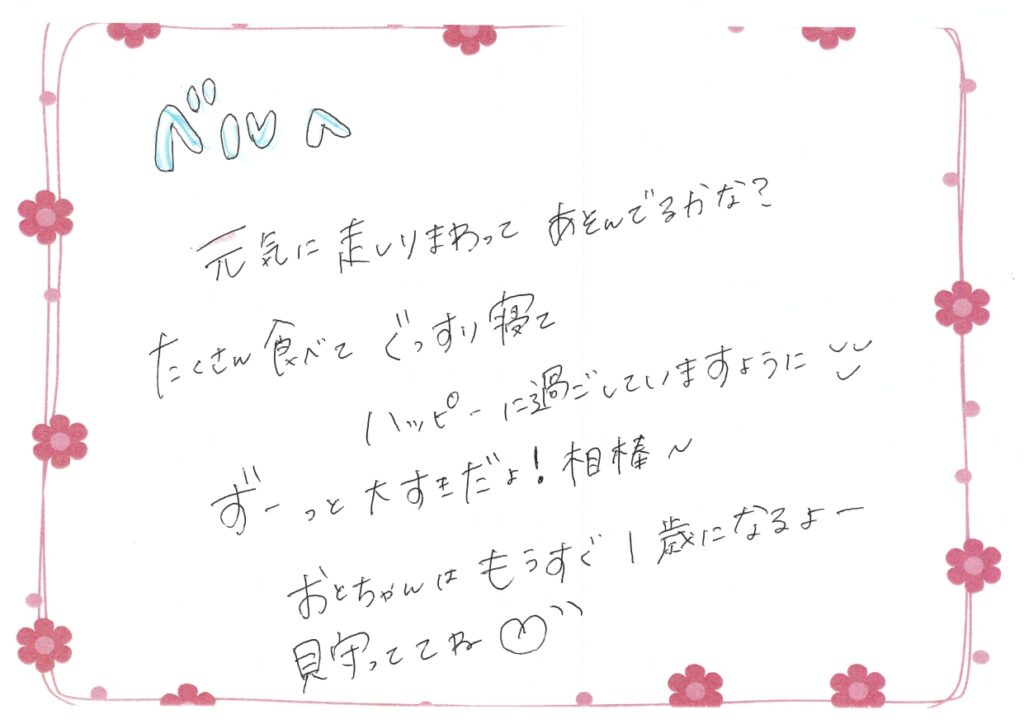 ベルへ
元気に走しりまわって あそんでるかな?
たくさん食べて ぐっすり寝て
ハッピーに過ごしていますように
ずーっと大すきだよ!相棒~
おとちゃんはもうすぐ1歳になるよー
見守っててね